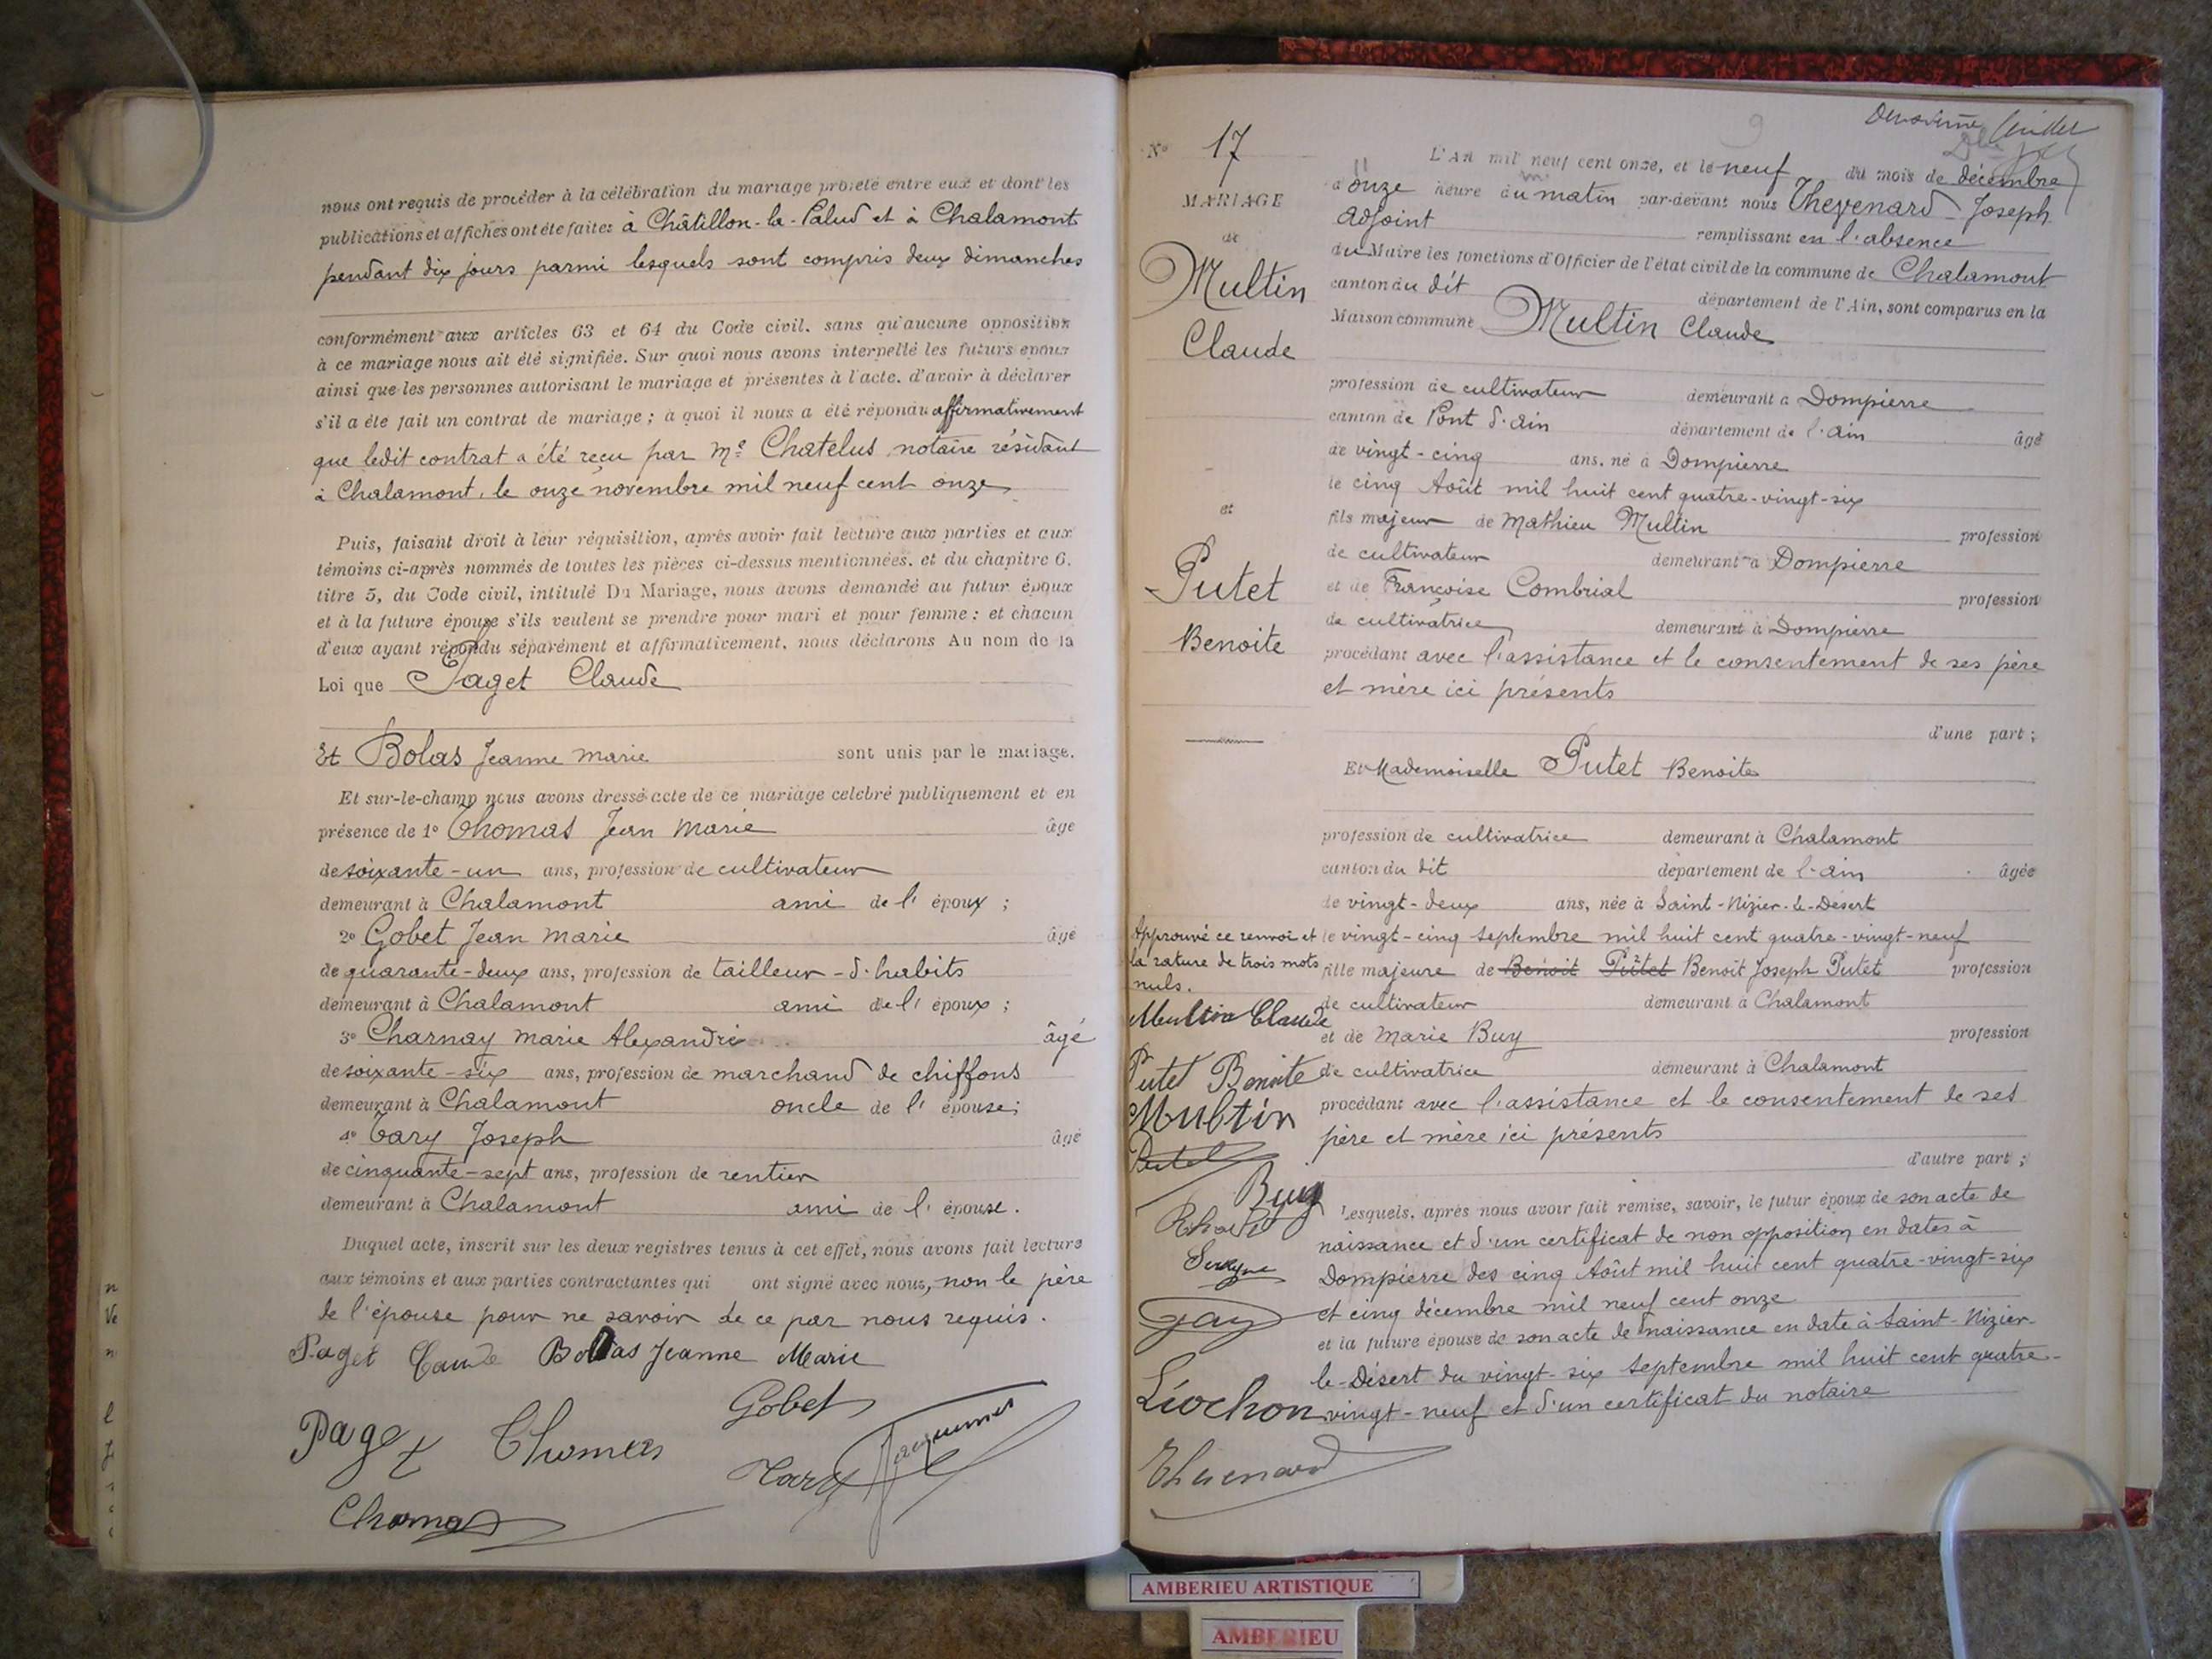 nous ont requis de procéder à la célébration du mariage projeté entre eux et dont les
publications et affiches ont été faites à Châtillon-la-Palud et à Chalamont
pendant dix jours parmi lesquels sont compris deux dimanches
conformément aux articles 63 et 64 du Code civil, sans qu'aucune opposition
à ce mariage nous ait été signifiée. Sur quoi nous avons interpellé les futurs époux
ainsi que les personnes autorisant le mariage et présentes à l'acte, d'avoir à déclarer
s'il a été fait un contrat de mariage ; à quoi il nous a été répondu affirmativement
que ledit contrat a été reçu par Me Chatelus, notaire résidant
à Chalamont, le onze novembre mil neuf cent onze
Puis, faisant droit à leur réquisition, après avoir fait lecture aux parties et aux
témoins ci-après nommés de toutes les pièces ci-dessus mentionnées, et du chapitre 6,
titre 5, du Code civil, intitulé Du Mariage, nous avons demandé au futur époux
et à la future épouse s'ils veulent se prendre pour mari et pour femme ; et chacun
d'eux ayant répondu séparément et affirmativement, nous déclarons Au nom de la
Loi que Paget Claude
Et Bolas Jeanne Marie sont unis par le mariage.
Et sur-le-champ nous avons dressé acte de ce mariage célébré publiquement et en
présence de 1° Thomas Jean Marie âgé
de soixante-un ans, profession de cultivateur
demeurant à Chalamont ami de l' époux ;
2° Gobet Jean Marie âgé
de quarante-deux ans, profession de tailleur-d'habits
demeurant à Chalamont ami de l' époux ;
3° Charnay Marie Alexandre âgé
de soixante-six ans, profession de marchand de chiffons
demeurant à Chalamont oncle de l' épouse ;
4° Tary Joseph âgé
de cinquante-sept ans, profession de rentier
demeurant à Chalamont ami de l' épouse.
Duquel acte, inscrit sur les deux registres tenus à cet effet, nous avons fait lecture
aux témoins et aux parties contractantes qui ont signé avec nous, non le père
de l'épouse pour ne savoir de ce par nous requis.
Paget Claude Bolas Jeanne Marie
Paget Thomas Gobet
Tary
N° 17
MARIAGE
de
Multin
Claude
et
Putet
Benoite
L'An mil neuf cent onze, et le neuf du mois de décembre
à onze heure du matin par-devant nous Thevenard Joseph
adjoint remplissant en l'absence
du Maire les fonctions d'Officier de l'état civil de la commune de Chalamont
canton du dit département de l'Ain, sont comparus en la
Maison commune Multin Claude
profession de cultivateur demeurant à Dompierre
canton de Pont d'Ain département de l'Ain âgé
de vingt-cinq ans, né à Dompierre
le cinq Août mil huit cent quatre-vingt-six
fils majeur de Mathieu Multin profession
de cultivateur demeurant à Dompierre
et de Françoise Combrial profession
de cultivatrice demeurant à Dompierre
procédant avec l'assistance et le consentement de ses père
et mère ici présents
d'une part ;
Et Mademoiselle Putet Benoite
profession de cultivatrice demeurant à Chalamont
canton du dit département de l'Ain âgée
de vingt-deux ans, née à Saint-Nizier-le-Désert
le vingt-cinq septembre mil huit cent quatre-vingt-neuf
fille majeure de Benoit Putet Benoît Joseph Putet profession
de cultivateur demeurant à Chalamont
et de Marie Buy profession
de cultivatrice demeurant à Chalamont
procédant avec l'assistance et le consentement de ses
père et mère ici présents
d'autre part ;
Lesquels, après nous avoir fait remise, savoir, le futur époux de son acte de
naissance et d'un certificat de non opposition en dates à
Dompierre des cinq Août mil huit cent quatre-vingt-six
et cinq décembre mil neuf cent onze
et la future épouse de son acte de naissance en date à Saint-Nizier-
le-Désert du vingt-six septembre mil huit cent quatre-
vingt-neuf et d'un certificat du notaire
Approuvé ce renvoi et
la rature de trois mots
nuls.
Multin Claude
Putet Benoite
Multin
Putet
Buy
Gay
Liochon
Thevenard
AMBERIEU ARTISTIQUE
AMBERIEU